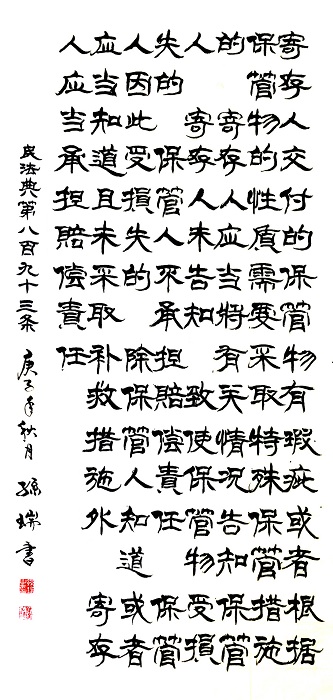 寄存人交付的保管物有瑕疵或者根据
保管物的性质需要采取特殊保管措施
的 寄存人应当将 有关情况告知保管
人 寄存人未告知 致使保管物 受损
失的 保管人来承担赔偿责任 保管
人因此受损失的 除保管人知道或者
应当知道且未采取补救措施外 寄存
人应当承担赔偿责任
民法典第八百九十三条 庚子年秋月 孙瑞书